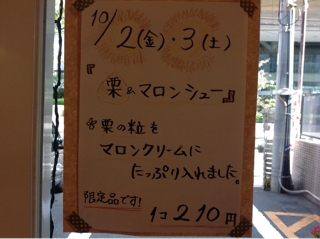 10/2(金)・3(土)
『栗&マロンシュー』
※栗の粒を
マロンクリームに
たっぷり入れました。
限定品です!
1コ210円